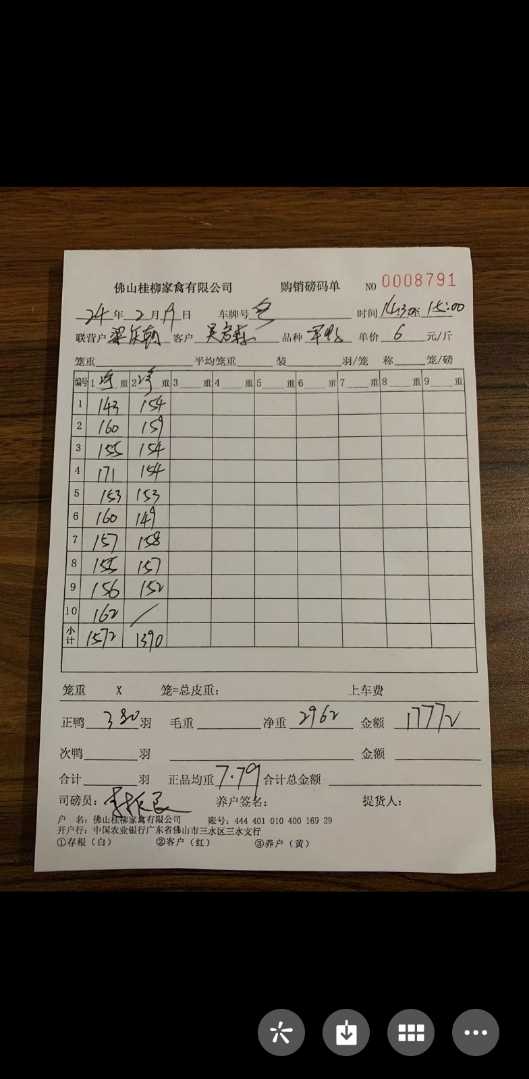 佛山桂柳家禽有限公司 购销磅码单 NO 0008791
24年2月 日 车牌号 时间 15:00
联营户 客户 品种 单价 6 元/斤
笼重 平均笼重 装 羽/笼 称 笼/磅
编号 1 重 2 重 3 重 4 重 5 重 6 重 7 重 8 重 9 重
1 143 154
2 160 159
3 155 154
4 171 154
5 153 153
6 160 149
7 157 158
8 155 157
9 156 152
10 162 /
小计 1572 1390
笼重 X 笼=总皮重: 上车费
正鸭 380 羽 毛重 净重 2962 金额 17772
次鸭 羽 金额
合计 羽 正品均重 7.79 合计总金额
司磅员: 养户签名: 提货人:
户 名: 佛山桂柳家禽有限公司 账号: 444 401 010 400 169 29
开户行: 中国农业银行广东省佛山市三水区三水支行
①存根(白) ②客户(红) ③养户(黄)